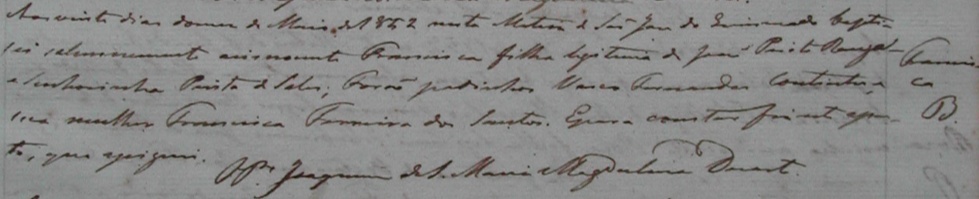 Aos vinte dias do mez de Maio de 1862 nesta Matriz de São João de bapti-
sei solemnemente a innocente Francisca filha legitima de José Pinto Rangel Francis-
e Senhorinha Pinta de Sales, Forão padrinhos Vasco Fernandes Coutinho, e ca
sua mulher Francisca Ferreira dos Santos. E para constar fiz este assen- B.
to, que assignei.
Joaquim de S. Maria Magdalena Duarte.